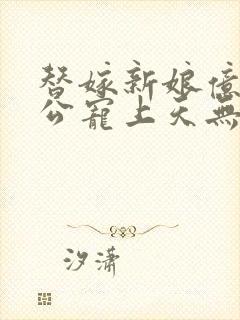 替嫁新娘億
公寵上天無
汐瀟